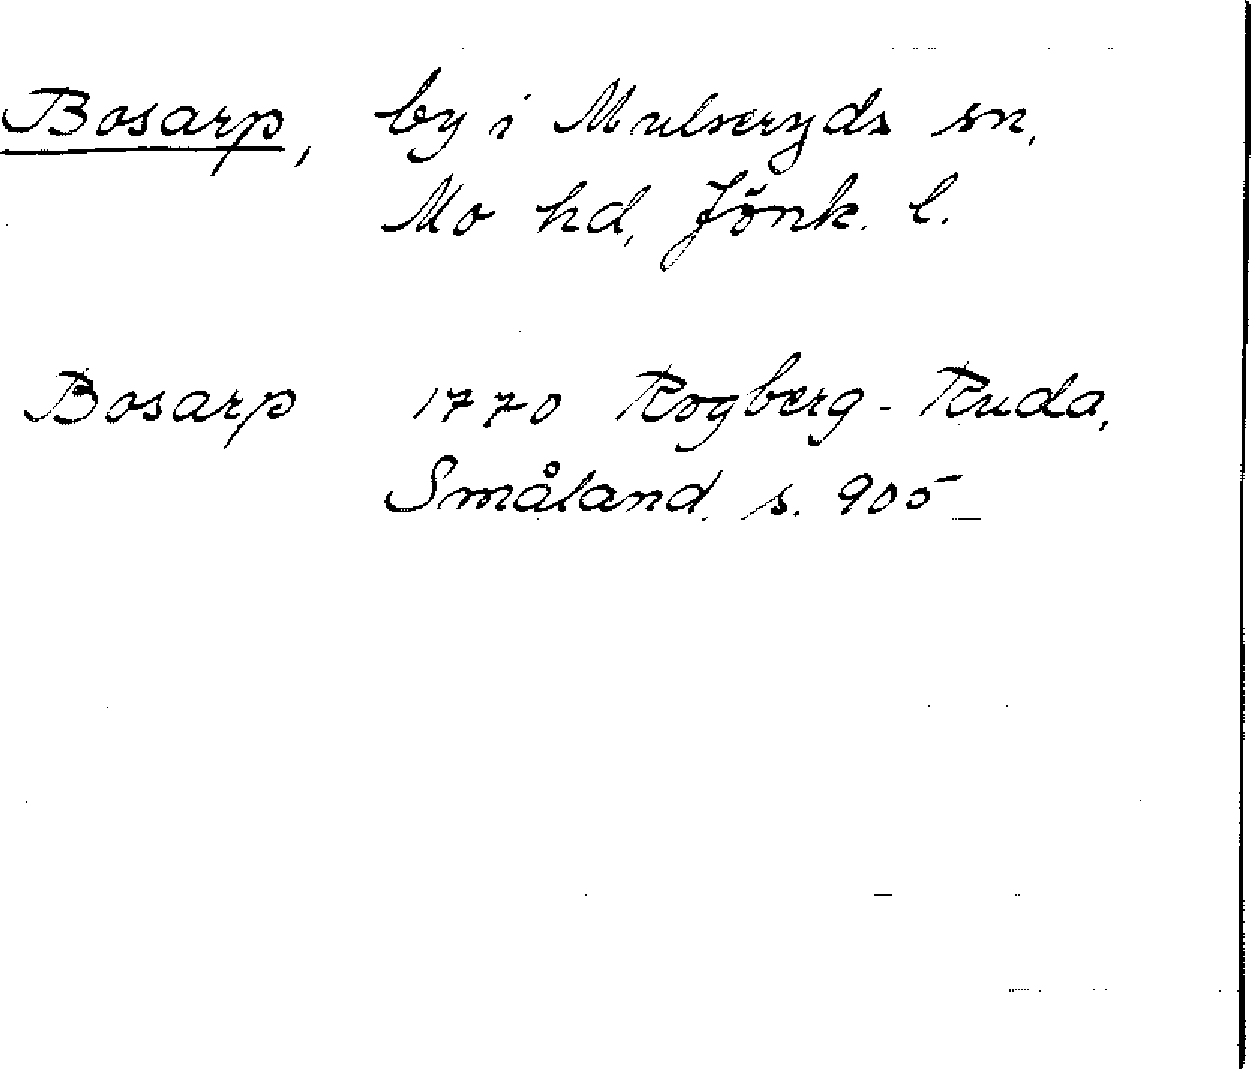 Bosarp, by i Mulseryds sn,
Mo hd, Jönk. l.
Bosarp 1770 Rogberg - Ruda,
Småland. s. 905